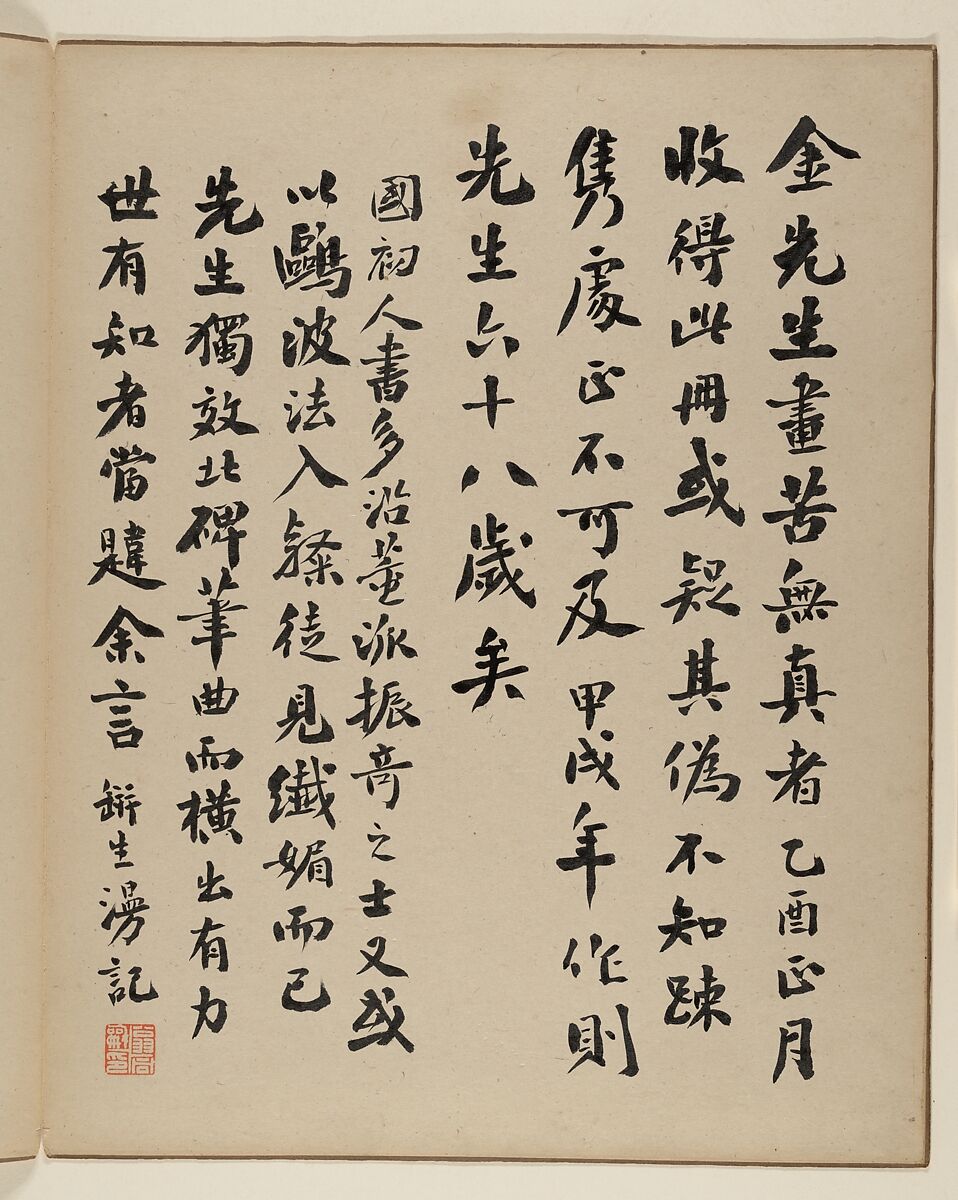 金先生畫苦無真者乙酉正月
收得此冊或疑其偽不知踈
雋處正不可及甲戌年作則
先生六十八歲矣
國初人書多沿董派振奇之士又或
以鷗波法入隸徒見纖媚而已
先生獨效北碑筆曲而橫出有力
世有知者當韙余言 缾生漫記